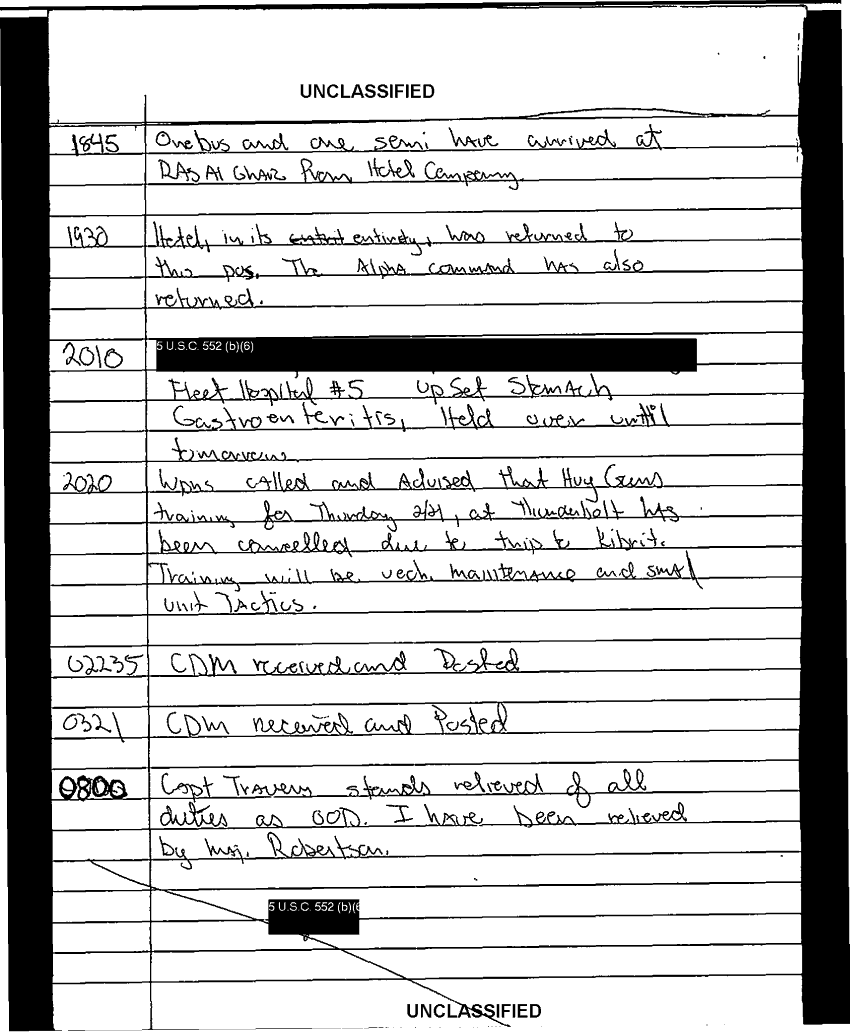 UNCLASSIFIED
1845 One bus and one semi have arrived at
RAS Al GHAR From Hotel Company.
1930 Hotel, in its entirety, has returned to
this pos. The Alpha command has also
returned.
2010 5 U.S.C. 552 (b)(6)
Fleet Hospital #5 Upset Stomach
Gastroenteritis, Held over until
tomorrow
2020 Wpns called and Advised that Hvy Guns
training for Thursday 2/21, at Thunderbolt has
been cancelled due to trip to Kibrit.
Training will be vech. maintenance and small
unit Tactics.
02235 CDM received and Posted
0321 CDM received and Posted
0800 Capt Travers stands relieved of all
duties as OOD. I have been relieved
by Maj. Robertson.
5 U.S.C. 552 (b)(6
UNCLASSIFIED